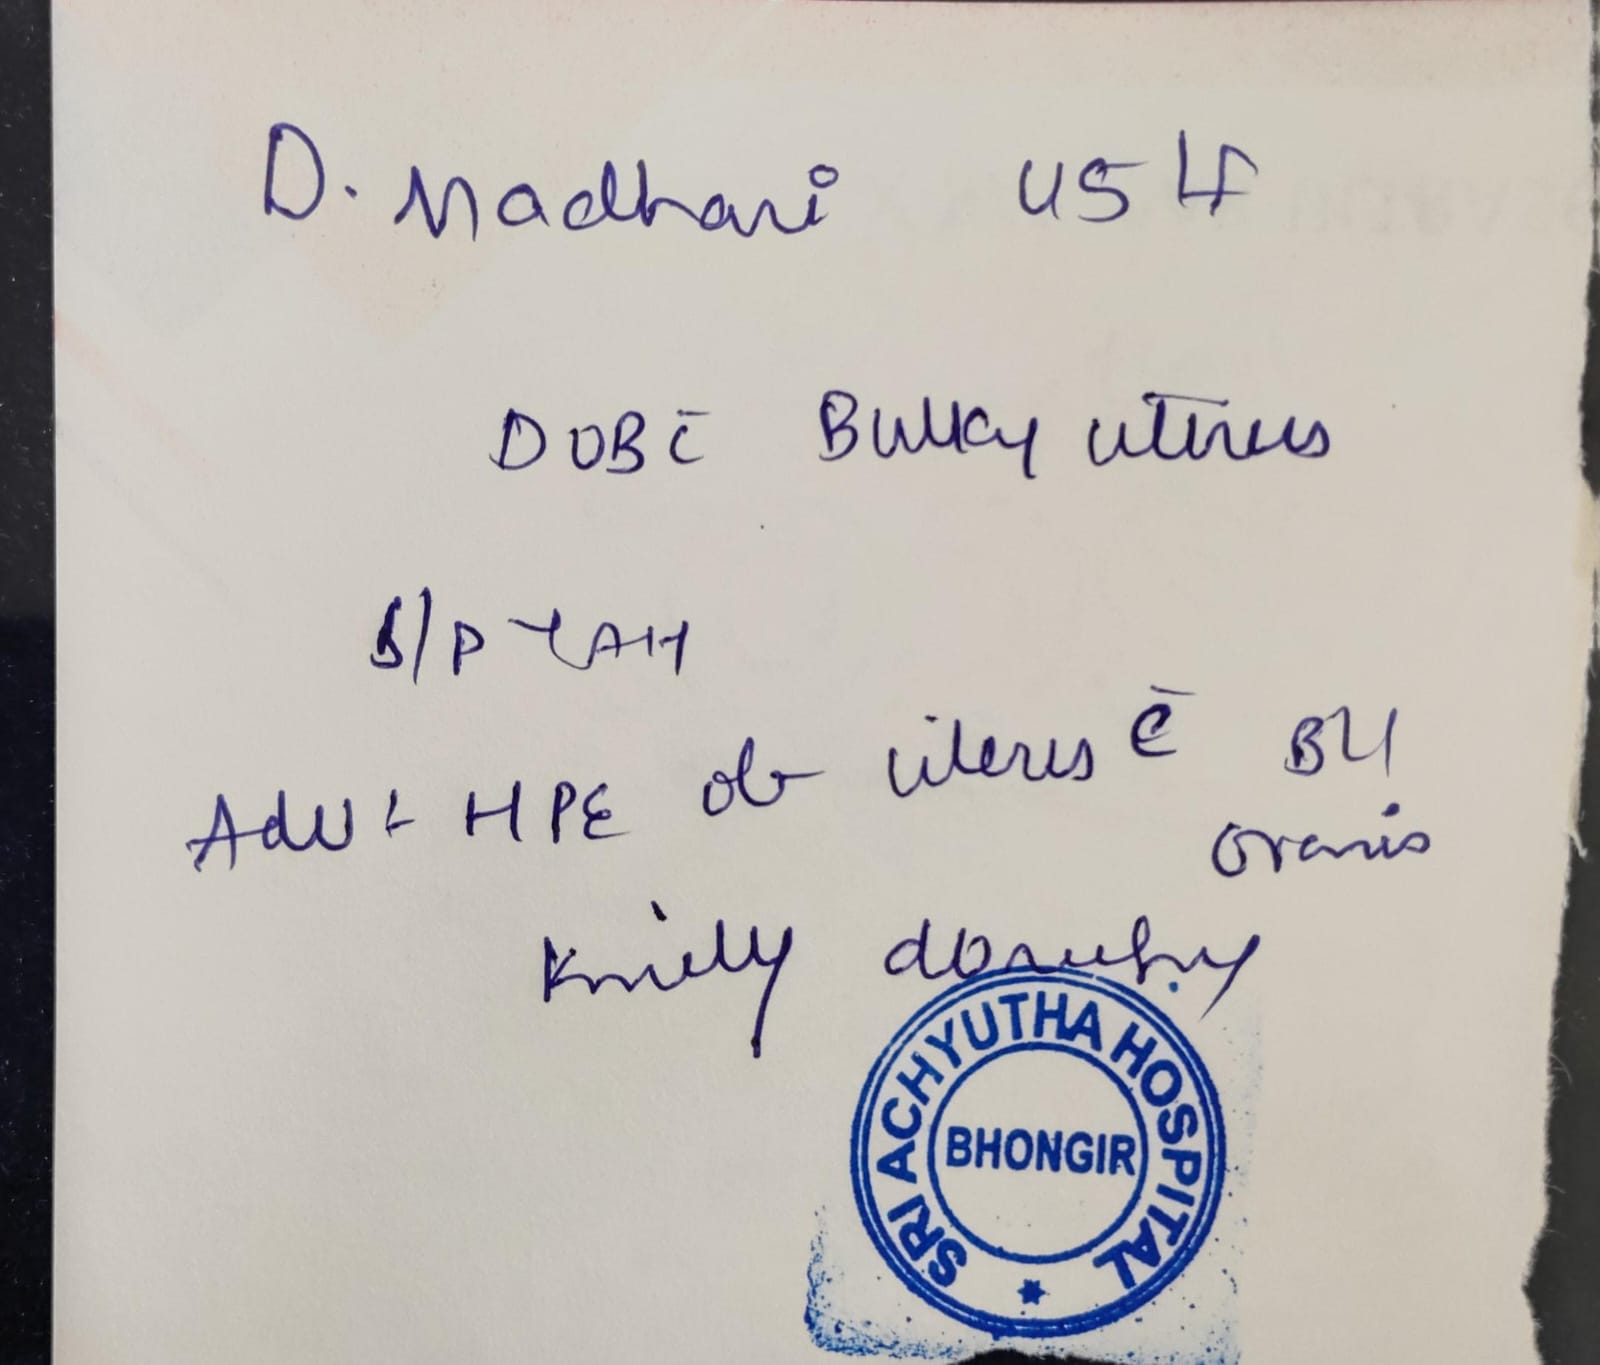 D. Madhavi 45 Y/F
DUB c̄ Bulky uterus
S/P TAH
Adv :- HPE of uterus c̄ B/L
ovaries
Kindly do needful
SRI ACHYUTHA HOSPITAL
BHONGIR